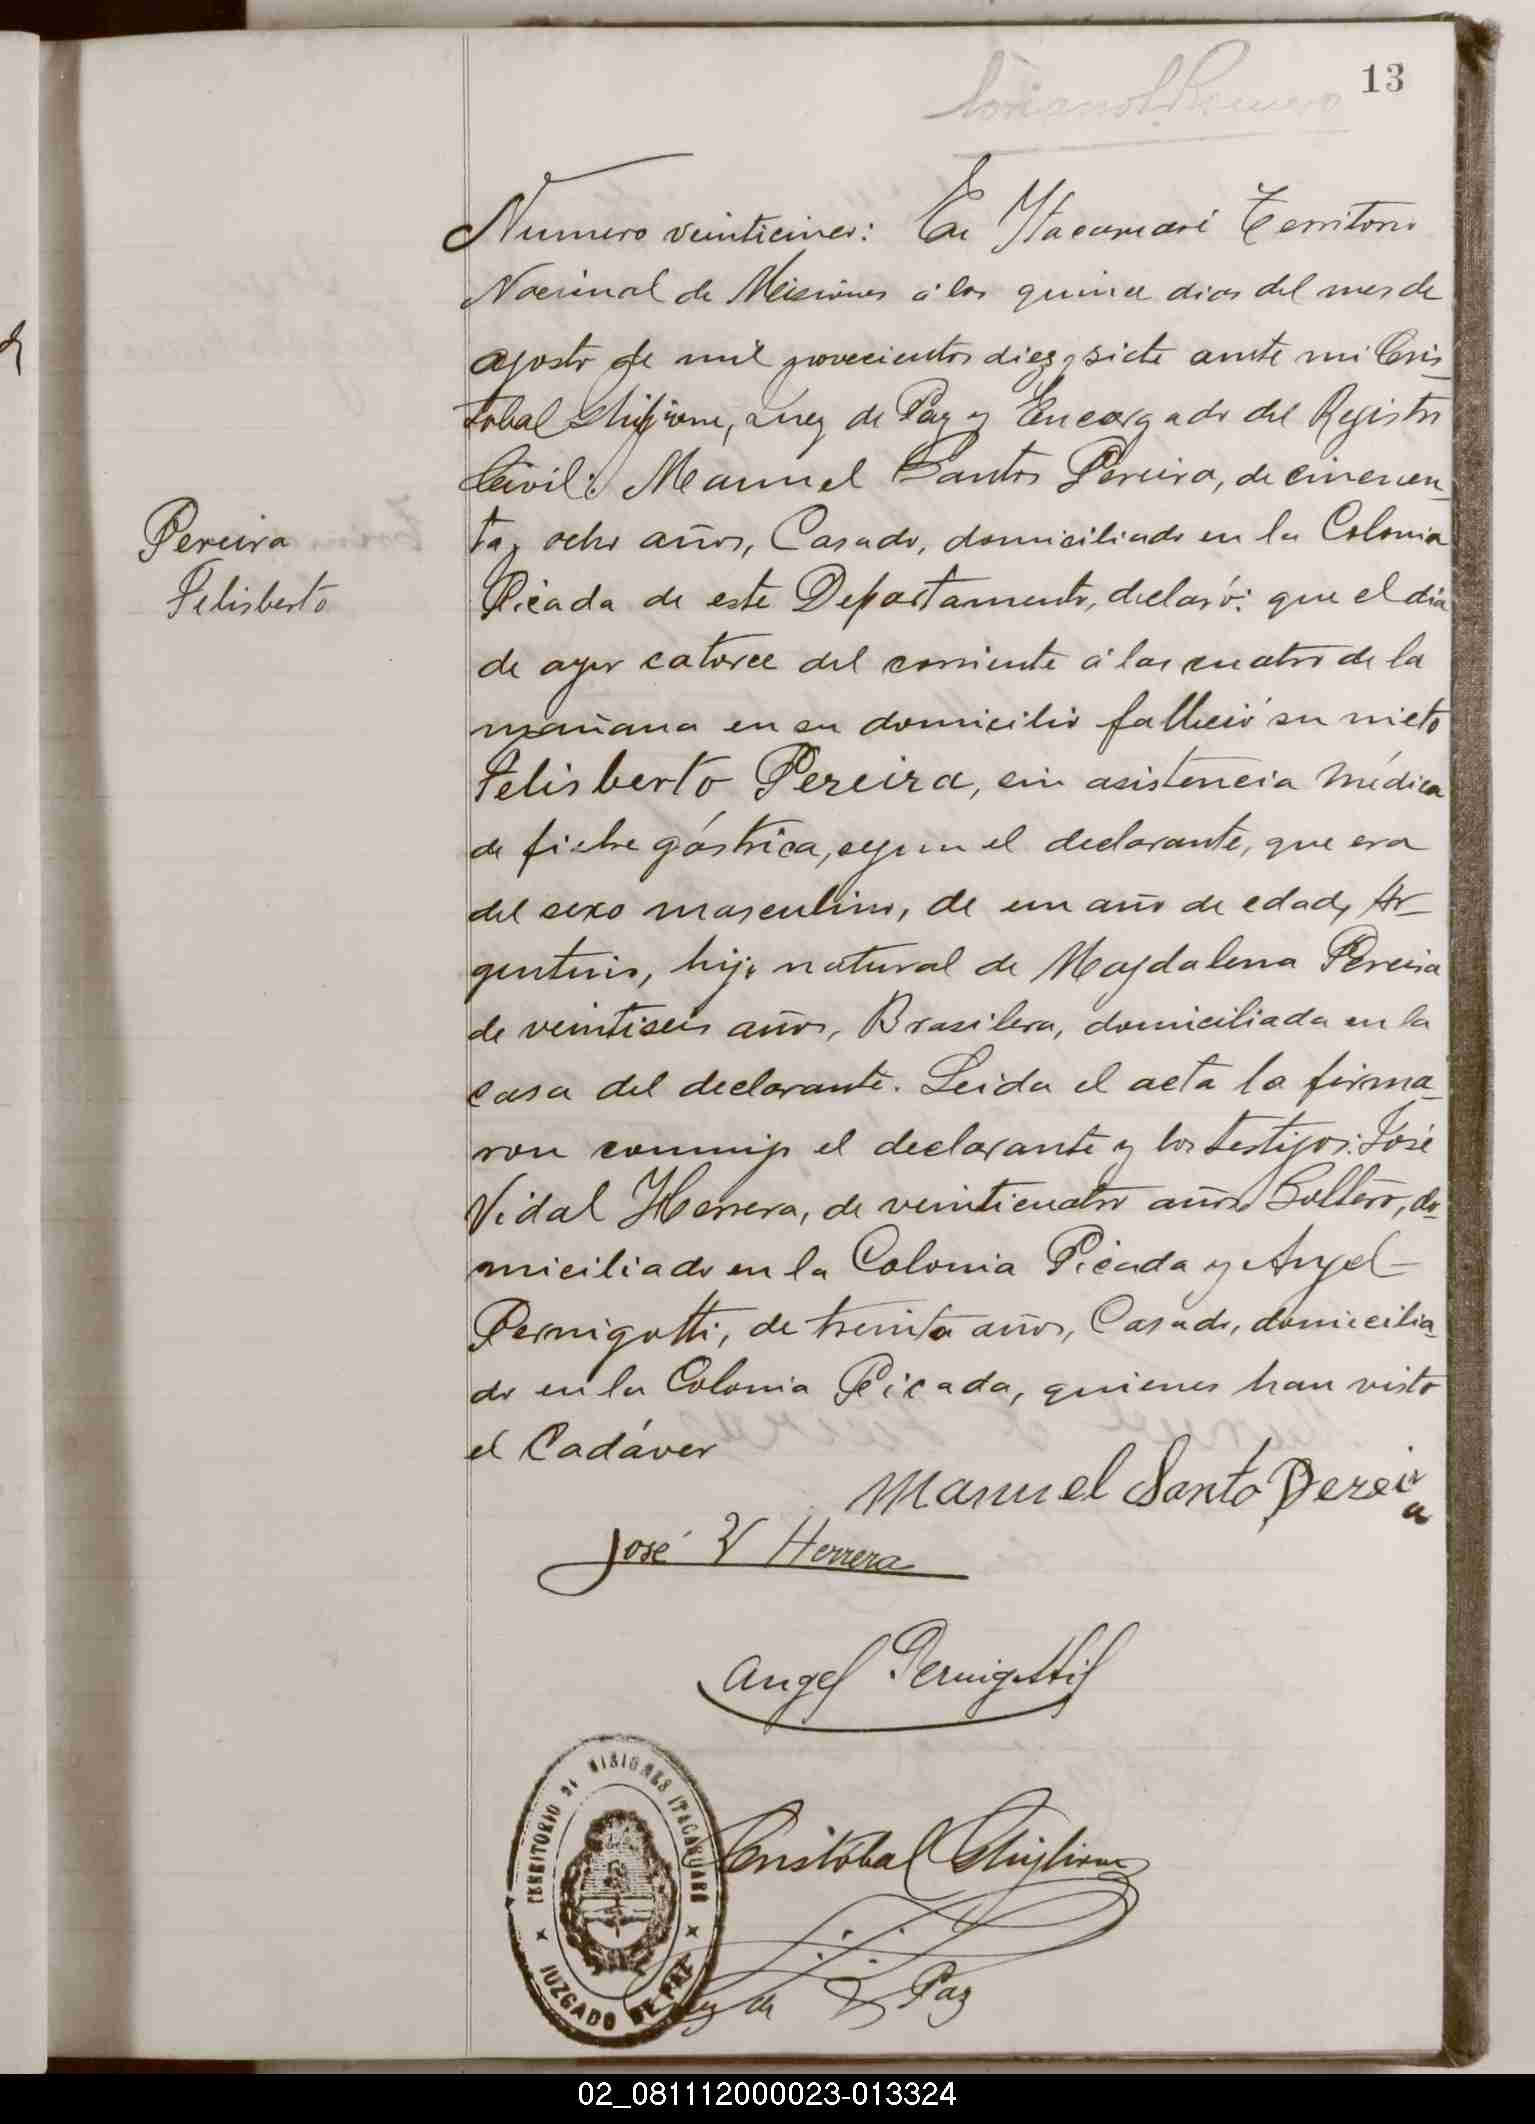 13
Numero veinticinco: En Itacaruaré Territorio
Nacional de Misiones á los quince dias del mes de
agosto de mil novecientos diez y siete ante mi Cris-
tobal Ghiglione, Juez de Paz y Encargado del Registro
Civil: Manuel Santos Pereira, de cincuen-
ta y ocho años, Casado, domiciliado en la Colonia
Picada de este Departamento, declaró: que el dia
de ayer catorce del corriente á las cuatro de la
mañana en su domicilio falleció su nieto
Felisberto Pereira, sin asistencia médica
de fiebre gástrica, segun el declarante, que era
del sexo masculino, de un año de edad, Ar-
gentino, hijo natural de Magdalena Pereira
de veintiseis años, Brasilera, domiciliada en la
casa del declarante. Leida el acta la firma-
ron conmigo el declarante y los testigos: José
Vidal Herrera, de veinticuatro años Soltero, do-
miciliado en la Colonia Picada y Angel
Pernigotti, de treinta años, Casado, domicilia-
do en la Colonia Picada, quienes han visto
el Cadáver
Pereira
Felisberto
Manuel Santo Pereira
José V Herrera
Angel Pernigotti
Cristobal Ghiglione
Juez de Paz
TERRITORIO DE MISIONES ITACARUARE
JUZGADO DE PAZ
02_081112000023-013324